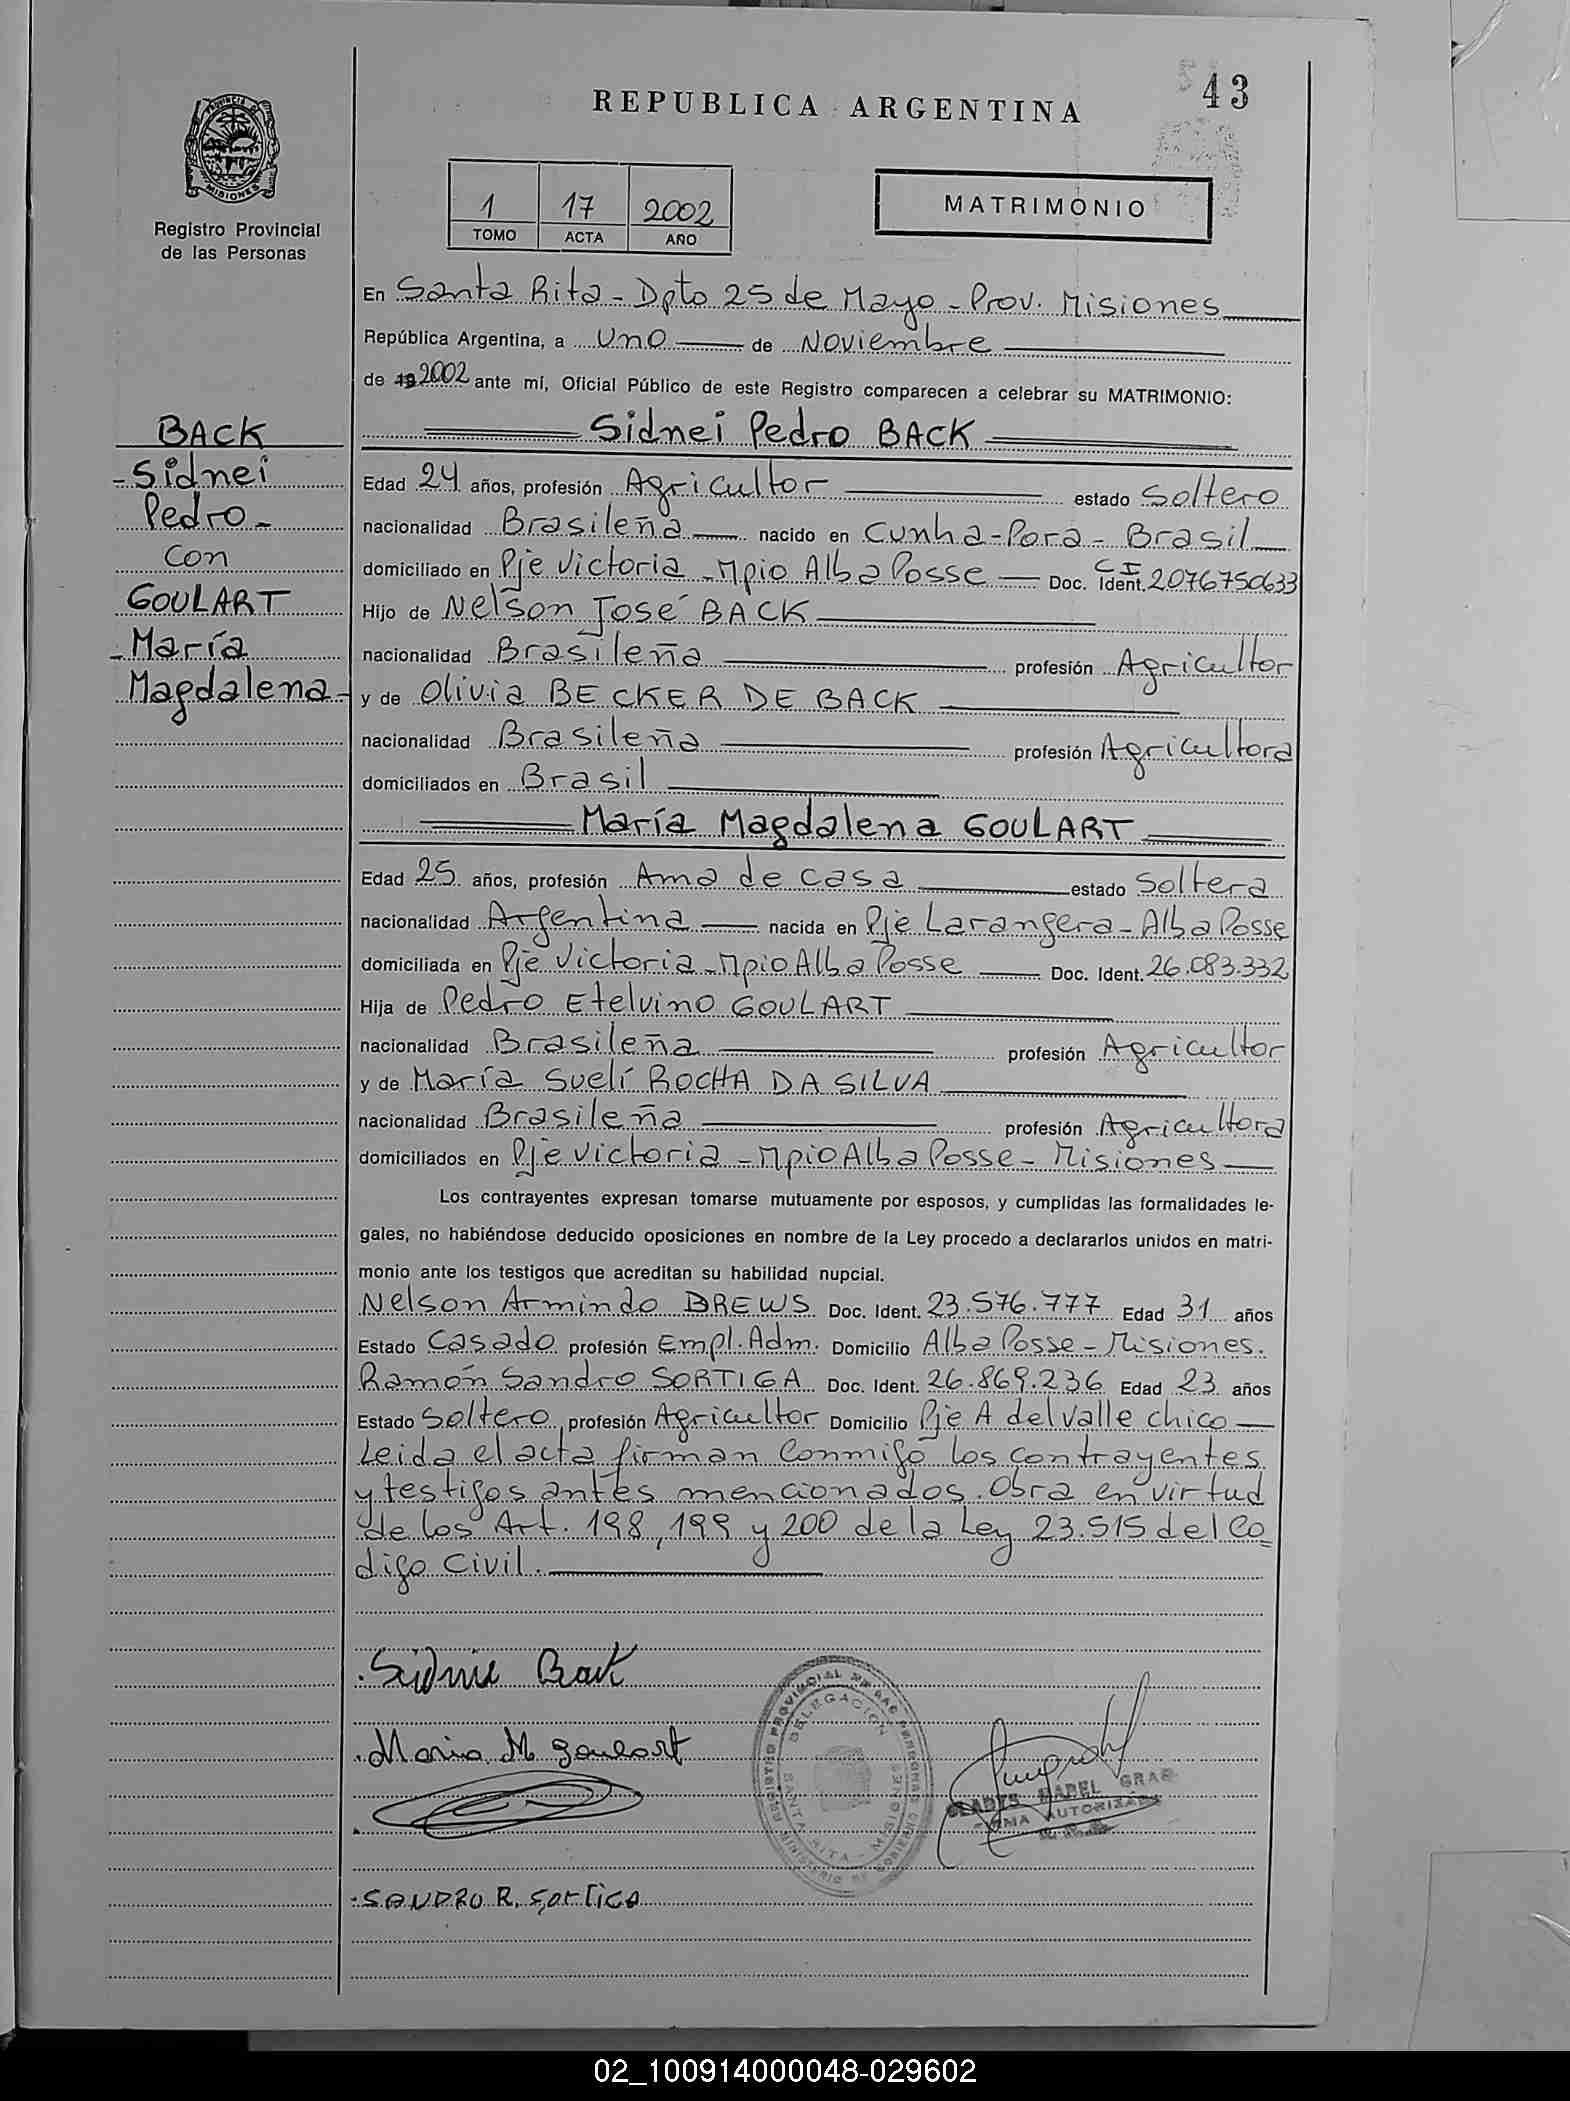 43
REPUBLICA ARGENTINA
PROVINCIA DE
MISIONES
Registro Provincial
de las Personas
1 17 2002
TOMO ACTA AÑO
MATRIMONIO
En Santa Rita - Dpto 25 de Mayo - Prov. Misiones
República Argentina, a Uno de Noviembre
de 192002 ante mí, Oficial Público de este Registro comparecen a celebrar su MATRIMONIO:
BACK
- Sidnei
Pedro -
con
GOULART
- María
Magdalena -
Sidnei Pedro BACK
Edad 24 años, profesión Agricultor estado Soltero
nacionalidad Brasileña nacido en Cunha-Pora - Brasil
domiciliado en Pje Victoria - Mpio Alba Posse Doc. Ident. C I 2076750633
Hijo de Nelson José BACK
nacionalidad Brasileña profesión Agricultor
y de Olivia BECKER DE BACK
nacionalidad Brasileña profesión Agricultora
domiciliados en Brasil
María Magdalena GOULART
Edad 25 años, profesión Ama de casa estado Soltera
nacionalidad Argentina nacida en Pje Larangera - Alba Posse
domiciliada en Pje Victoria - Mpio Alba Posse Doc. Ident. 26.083.332
Hija de Pedro Etelvino GOULART
nacionalidad Brasileña profesión Agricultor
y de María Suelí ROCHA DA SILVA
nacionalidad Brasileña profesión Agricultora
domiciliados en Pje Victoria - Mpio Alba Posse - Misiones
Los contrayentes expresan tomarse mutuamente por esposos, y cumplidas las formalidades le-
gales, no habiéndose deducido oposiciones en nombre de la Ley procedo a declararlos unidos en matri-
monio ante los testigos que acreditan su habilidad nupcial.
Nelson Armindo DREWS Doc. Ident. 23.576.777 Edad 31 años
Estado Casado profesión Empl. Adm. Domicilio Alba Posse - Misiones.
Ramón Sandro SORTIGA Doc. Ident. 26.869.236 Edad 23 años
Estado Soltero profesión Agricultor Domicilio Pje A del Valle chico
Leida el acta firman Conmigo los contrayentes
y testigos antes mencionados. Obra en virtud
de los Art. 198, 199 y 200 de la Ley 23.515 del Co
digo Civil.
Sidnie Back
Maria M Goulart
REGISTRO PROVINCIAL DE LAS PERSONAS
DELEGACION
SANTA RITA - MISIONES
MINISTERIO DE GOBIERNO
GLADYS MABEL GRAS
FIRMA AUTORIZADA
SANDRO R. Sortiga
02_100914000048-029602